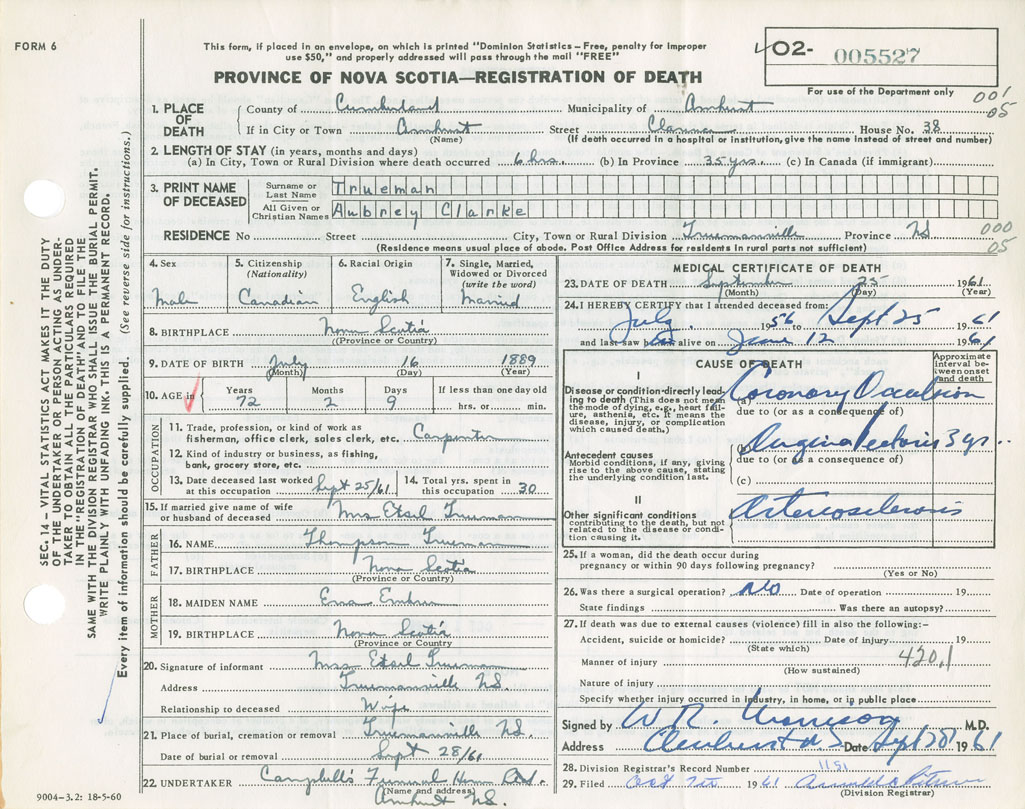 FORM 6
This form, if placed in an envelope, on which is printed "Dominion Statistics – Free, penalty for improper
use $50," and properly addressed will pass through the mail "FREE"
PROVINCE OF NOVA SCOTIA—REGISTRATION OF DEATH
✓02- 005527
For use of the Department only
001
05
1. PLACE OF DEATH
County of Cumberland Municipality of Amherst
If in City or Town Amherst Street House No. 38
(Name) (If death occurred in a hospital or institution, give the name instead of street and number)
2. LENGTH OF STAY (in years, months and days)
(a) In City, Town or Rural Division where death occurred 6 hrs. (b) In Province 35 yrs. (c) In Canada (if immigrant)
3. PRINT NAME OF DECEASED
Surname or Last Name Trueman
All Given or Christian Names Aubrey Clarke
RESIDENCE No Street City, Town or Rural Division Truemanville Province NS
000
05
(Residence means usual place of abode. Post Office Address for residents in rural parts not sufficient)
4. Sex Male
5. Citizenship (Nationality) Canadian
6. Racial Origin English
7. Single, Married, Widowed or Divorced (write the word) Married
8. BIRTHPLACE Nova Scotia
(Province or Country)
9. DATE OF BIRTH July 16 1889
(Month) (Day) (Year)
10. AGE in Years 72 Months 2 Days 9 If less than one day old hrs. or min.
OCCUPATION
11. Trade, profession, or kind of work as
fisherman, office clerk, sales clerk, etc. Carpenter
12. Kind of industry or business, as fishing,
bank, grocery store, etc.
13. Date deceased last worked
at this occupation Sept 25/61
14. Total yrs. spent in
this occupation 30
15. If married give name of wife
or husband of deceased Mrs Trueman
FATHER
16. NAME Thompson Trueman
17. BIRTHPLACE Nova Scotia
(Province or Country)
MOTHER
18. MAIDEN NAME
19. BIRTHPLACE Nova Scotia
(Province or Country)
20. Signature of informant Mrs Trueman
Address Truemanville NS.
Relationship to deceased Wife
21. Place of burial, cremation or removal Truemanville NS.
Date of burial or removal Sept 28/61
22. UNDERTAKER Campbell's Funeral Home
(Name and address)
Amherst NS.
9004-3.2: 18-5-60
MEDICAL CERTIFICATE OF DEATH
23. DATE OF DEATH September 25 1961
(Month) (Day) (Year)
24. I HEREBY CERTIFY that I attended deceased from:
July 1956 to Sept 25 1961
and last saw him alive on June 12 1961
CAUSE OF DEATH
Approximate interval between onset and death
I
Disease or condition-directly leading to death (This does not mean
the mode of dying, e.g., heart failure, asthenia, etc. It means the
disease, injury, or complication
which caused death.)
(a) Coronary Occlusion
due to (or as a consequence of)
Angina Pectoris 3 yrs
due to (or as a consequence of)
(c)
Antecedent causes
Morbid conditions, if any, giving
rise to the above cause, stating
the underlying condition last.
II
Other significant conditions
contributing to the death, but not
related to the disease or condition causing it.
Arteriosclerosis
25. If a woman, did the death occur during
pregnancy or within 90 days following pregnancy?
(Yes or No)
26. Was there a surgical operation? No Date of operation 19
State findings Was there an autopsy?
27. If death was due to external causes (violence) fill in also the following:-
Accident, suicide or homicide? Date of injury 19
(State which)
Manner of injury 420.1
(How sustained)
Nature of injury
Specify whether injury occurred in industry, in home, or in public place
Signed by W R. M.D.
Address Amherst N.S. Date Sept 1961
28. Division Registrar's Record Number
29. Filed Oct 1961
(Division Registrar)
SEC. 14 – VITAL STATISTICS ACT MAKES IT THE DUTY
OF THE UNDERTAKER OR PERSON ACTING AS UNDER-
TAKER TO OBTAIN ALL THE PARTICULARS REQUIRED
IN THE "REGISTRATION OF DEATH" AND TO FILE THE
SAME WITH THE DIVISION REGISTRAR WHO SHALL ISSUE THE BURIAL PERMIT.
WRITE PLAINLY WITH UNFADING INK. THIS IS A PERMANENT RECORD.
Every item of information should be carefully supplied. (See reverse side for instructions.)